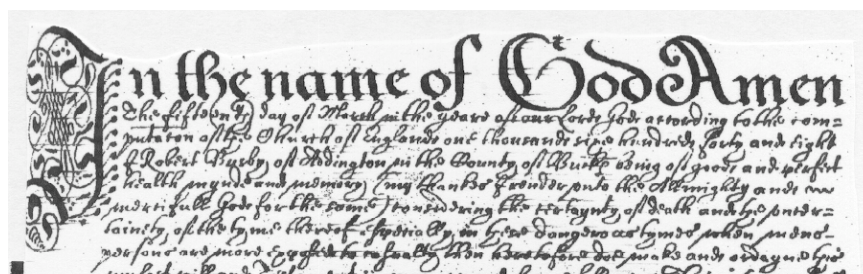 In the name of God Amen
The fifteenth day of March in the yeare of our Lord God according to the com=
putaton of the Church of England one thousand sixe hundred forty and eight
I Robert Busby of Addington in the County of Buck being of good and perfect
health mynde and memory (my thankes I render unto the Allmighty and
mercifull God for the same) considering the certaynty of death and the uncer=
tainety of the tyme thereof especially in these dangerous tymes when mens
persons are more exposed to casualty then heretofore doe make and ordayne this
my last will and